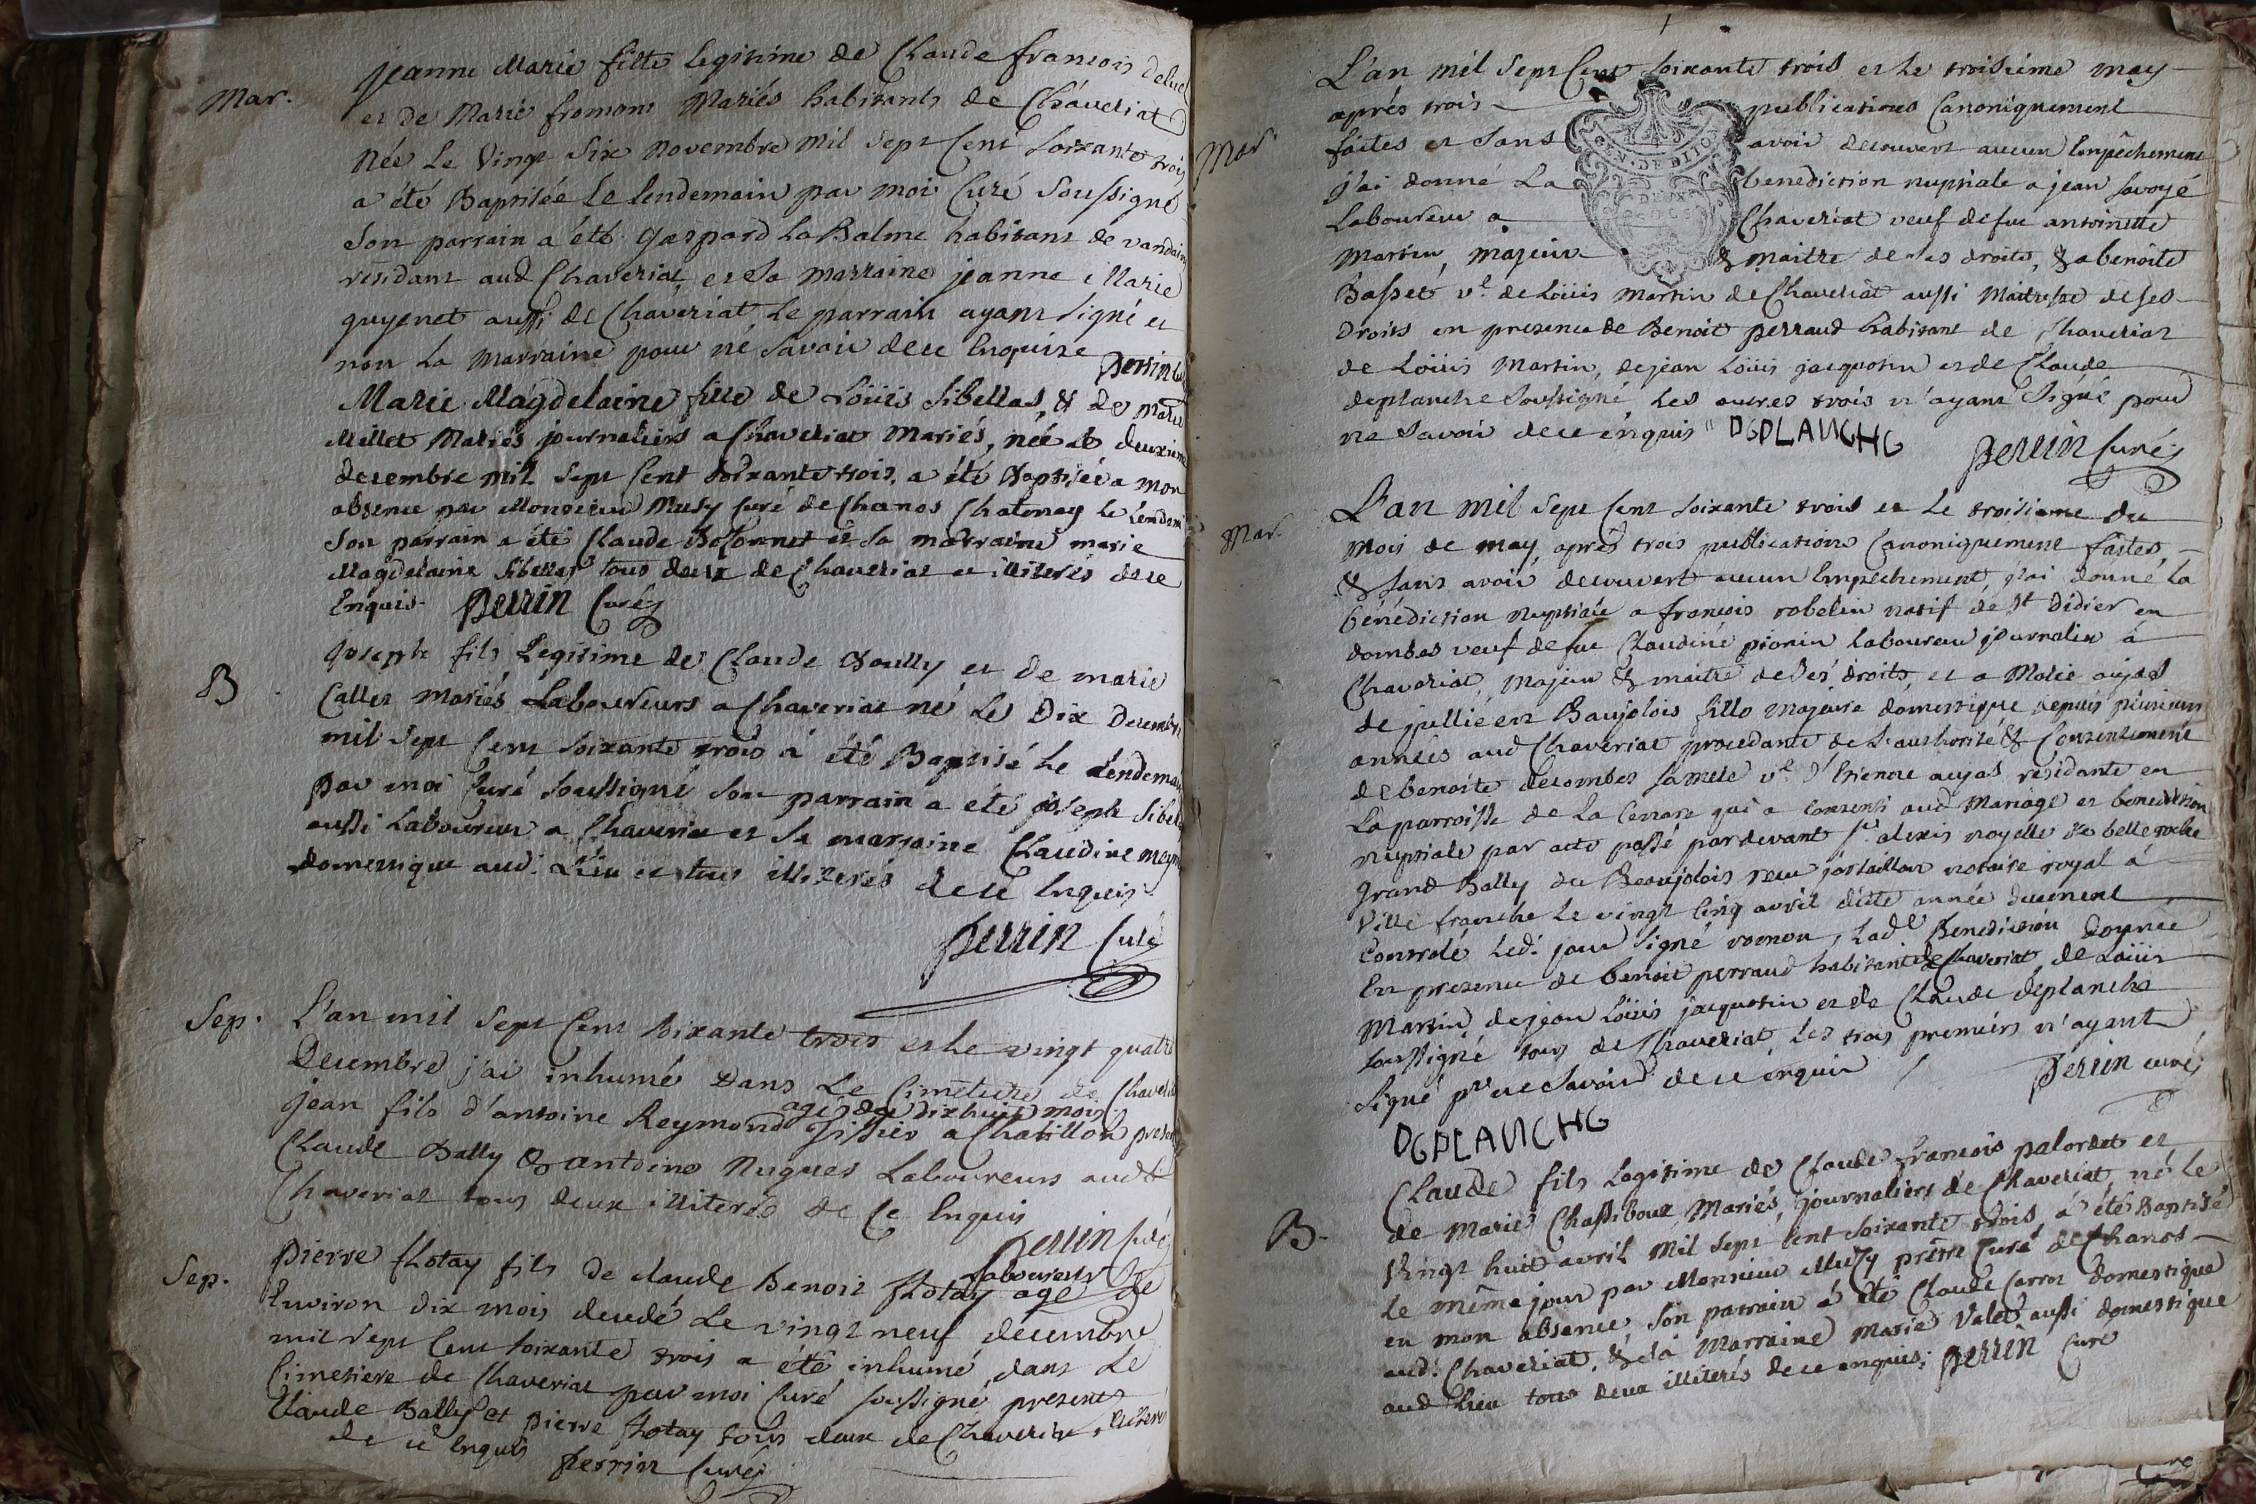 Mar.
jeanne Marie fille legitime de Claude francois
et de Marie fromont Mariés habitants de Chaveriat
Née Le Vingt Six Novembre mil sept Cent Soixante trois
a été Baptisée Le lendemain par moi Curé Soussigné
Son parrain a été gaspard La Balme habitant de
résidant aud Chaveriat, et Sa marraine jeanne Marie
guyenet aussi de Chaveriat, Le parrain ayant signé et
non La Marraine pour né Savoir de ce Enquise
Perrin
Marie Magdelaine fille de Loüis Sibellas, & De Marie
Millet Mariés journaliers a Chaveriat Mariés, née Le deuxieme
decembre mil sept Cent Soixante trois, a été Baptisée a mon
absence par Monsieur Musy Curé de Chanos Chatenay Le lendem
Son parrain a été Claude et Sa marraine marie
Magdelaine Sibellas tous deux de Chaveriat et illiterés de ce
Enquis. Perrin Curé
B
joseph fils Legitime de Claude et de marie
Callet mariés Laboureurs a Chaveriat né Le Dix Decembre
mil Sept Cent Soixante trois a été Baptisé Le lendemain
par moi Curé Soussigné Son parrain a été joseph Sibel
aussi Laboureur a Chaveriat et Sa marraine Claudine
domestique aud. Lieu et tous illiterés de ce Enquis
Perrin Curé
Sep.
L'an mil Sept Cent Soixante trois et Le vingt quatre
Decembre j'ai inhumé Dans Le Cimetiere de Chaveriat
agé de dix huit mois
jean fils d'antoine Reymond Tissier a Chatillon present
Claude Bally & antoine Nugues Laboureurs aud
Chaveriat tous deux illiterés de Ce Enquis
Perrin Curé
Sep.
Laboureur
Pierre flotay fils de Claude Benoit flotay agé de
Environ dix mois decedé Le vingt neuf decembre
mil Sept Cent Soixante trois a été inhumé dans Le
Cimetiere de Chaveriat par moi Curé Soussigné presents
Claude Bally et pierre flotay tous deux de Chaveriat, illiterés
de ce Enquis Perrin Curé
L'an mil Sept Cent Soixante trois et Le troisieme may
Mar.
aprés trois publications Canoniquement
faites et Sans avoir decouvert aucun Empêchement
j'ai donné La benediction nuptiale a jean Savoyé
Laboureur a Chaveriat veuf de fue antoinette
Martin, majeur & maitre de ses droits, & a benoite
Basset v.e de Loüis Martin de Chaveriat aussi Maitresse de Ses
Droits en presence de Benoit perraud habitant de Chaveriat
de Loüis Martin, de jean Loüis jacquotin et de Claude
deplanche Soussigné, Les autres trois n'ayant Signé pour
ne Savoir de ce enquis DGPLANCHG
Perrin Curé
Mar.
L'an mil Sept Cent Soixante trois et Le troisieme du
Mois de may, aprés trois publications Canoniquement faites
& Sans avoir decouvert aucun Empêchement, j'ai donné La
bénédiction nuptiale a francois robelin natif de St Didier en
dombes veuf de fue Claudine Laboureur journalier à
Chaveriat, Majeur & maitre de Ses droits, et a Marie aujas
de jullié en Baujolois fille majeure domestique depuis plusieurs
années aud Chaveriat procedante de L'authorité & Consentement
de benoite decombes Sa mere v.e d'Etienne aujas residante en
La parroisse de La Cenare qui a Consenti aud Mariage et benediction
nuptiale par acte passé pardevant Sr alexis noyelle de belle roche
grand Bally du Beaujolois notaire royal à
Ville franche Le vingt Cinq avril dite année duement
Controlé Led. jour Signé vernou, Lad.e Benediction donnée
En presence de benoit perraud habitant de Chaveriat de Loüis
Martin, de jean Loüis jacquotin et de Claude deplanche
Soussigné tous de Chaveriat, Les trois premiers n'ayant
Signé pr ne Savoir de ce enquis / Perrin curé
DGPLANCHG
B.
Claude fils Legitime de Claude francois palordet et
de Marie Chassiboux, Mariés, journaliers de Chaveriat, né Le
Vingt huit avril Mil Sept Cent Soixante trois a été Baptisé
Le même jour par Monsieur Muzy prêtre Curé de Chanos
en mon absence, Son parrain a été Claude Carron domestique
aud. Chaveriat, & La Marraine Marie Valet aussi domestique
aud Lieu tous deux illiterés de ce enquis. Perrin Curé